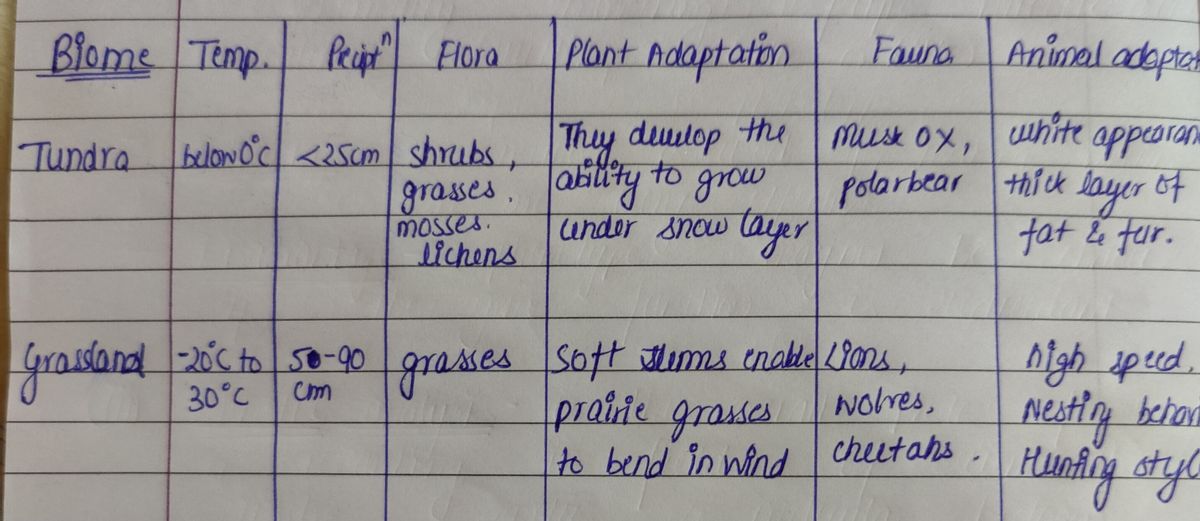 Biome Temp. Precipt^n Flora Plant Adaptation Fauna Animal adaptat
Tundra below 0°C <25cm shrubs, They develop the musk ox, white appearan
grasses. ability to grow polarbear thick layer of
mosses. under snow layer fat & fur.
lichens
Grassland -20°C to 50-90 grasses soft stems enable Lions, high speed,
30°C cm prairie grasses wolves, Nesting behav
to bend in wind cheetahs. Hunting styl